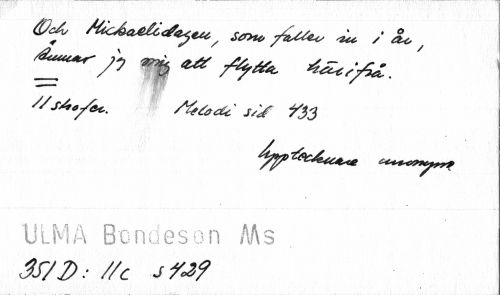 Och Mickaelidagen, som faller in i år,
ämnar jag mig att flytta härifrå.
11 strofer. Melodi sid 433
Upptecknare anonym
ULMA Bondeson Ms
351 D: 11c s 429